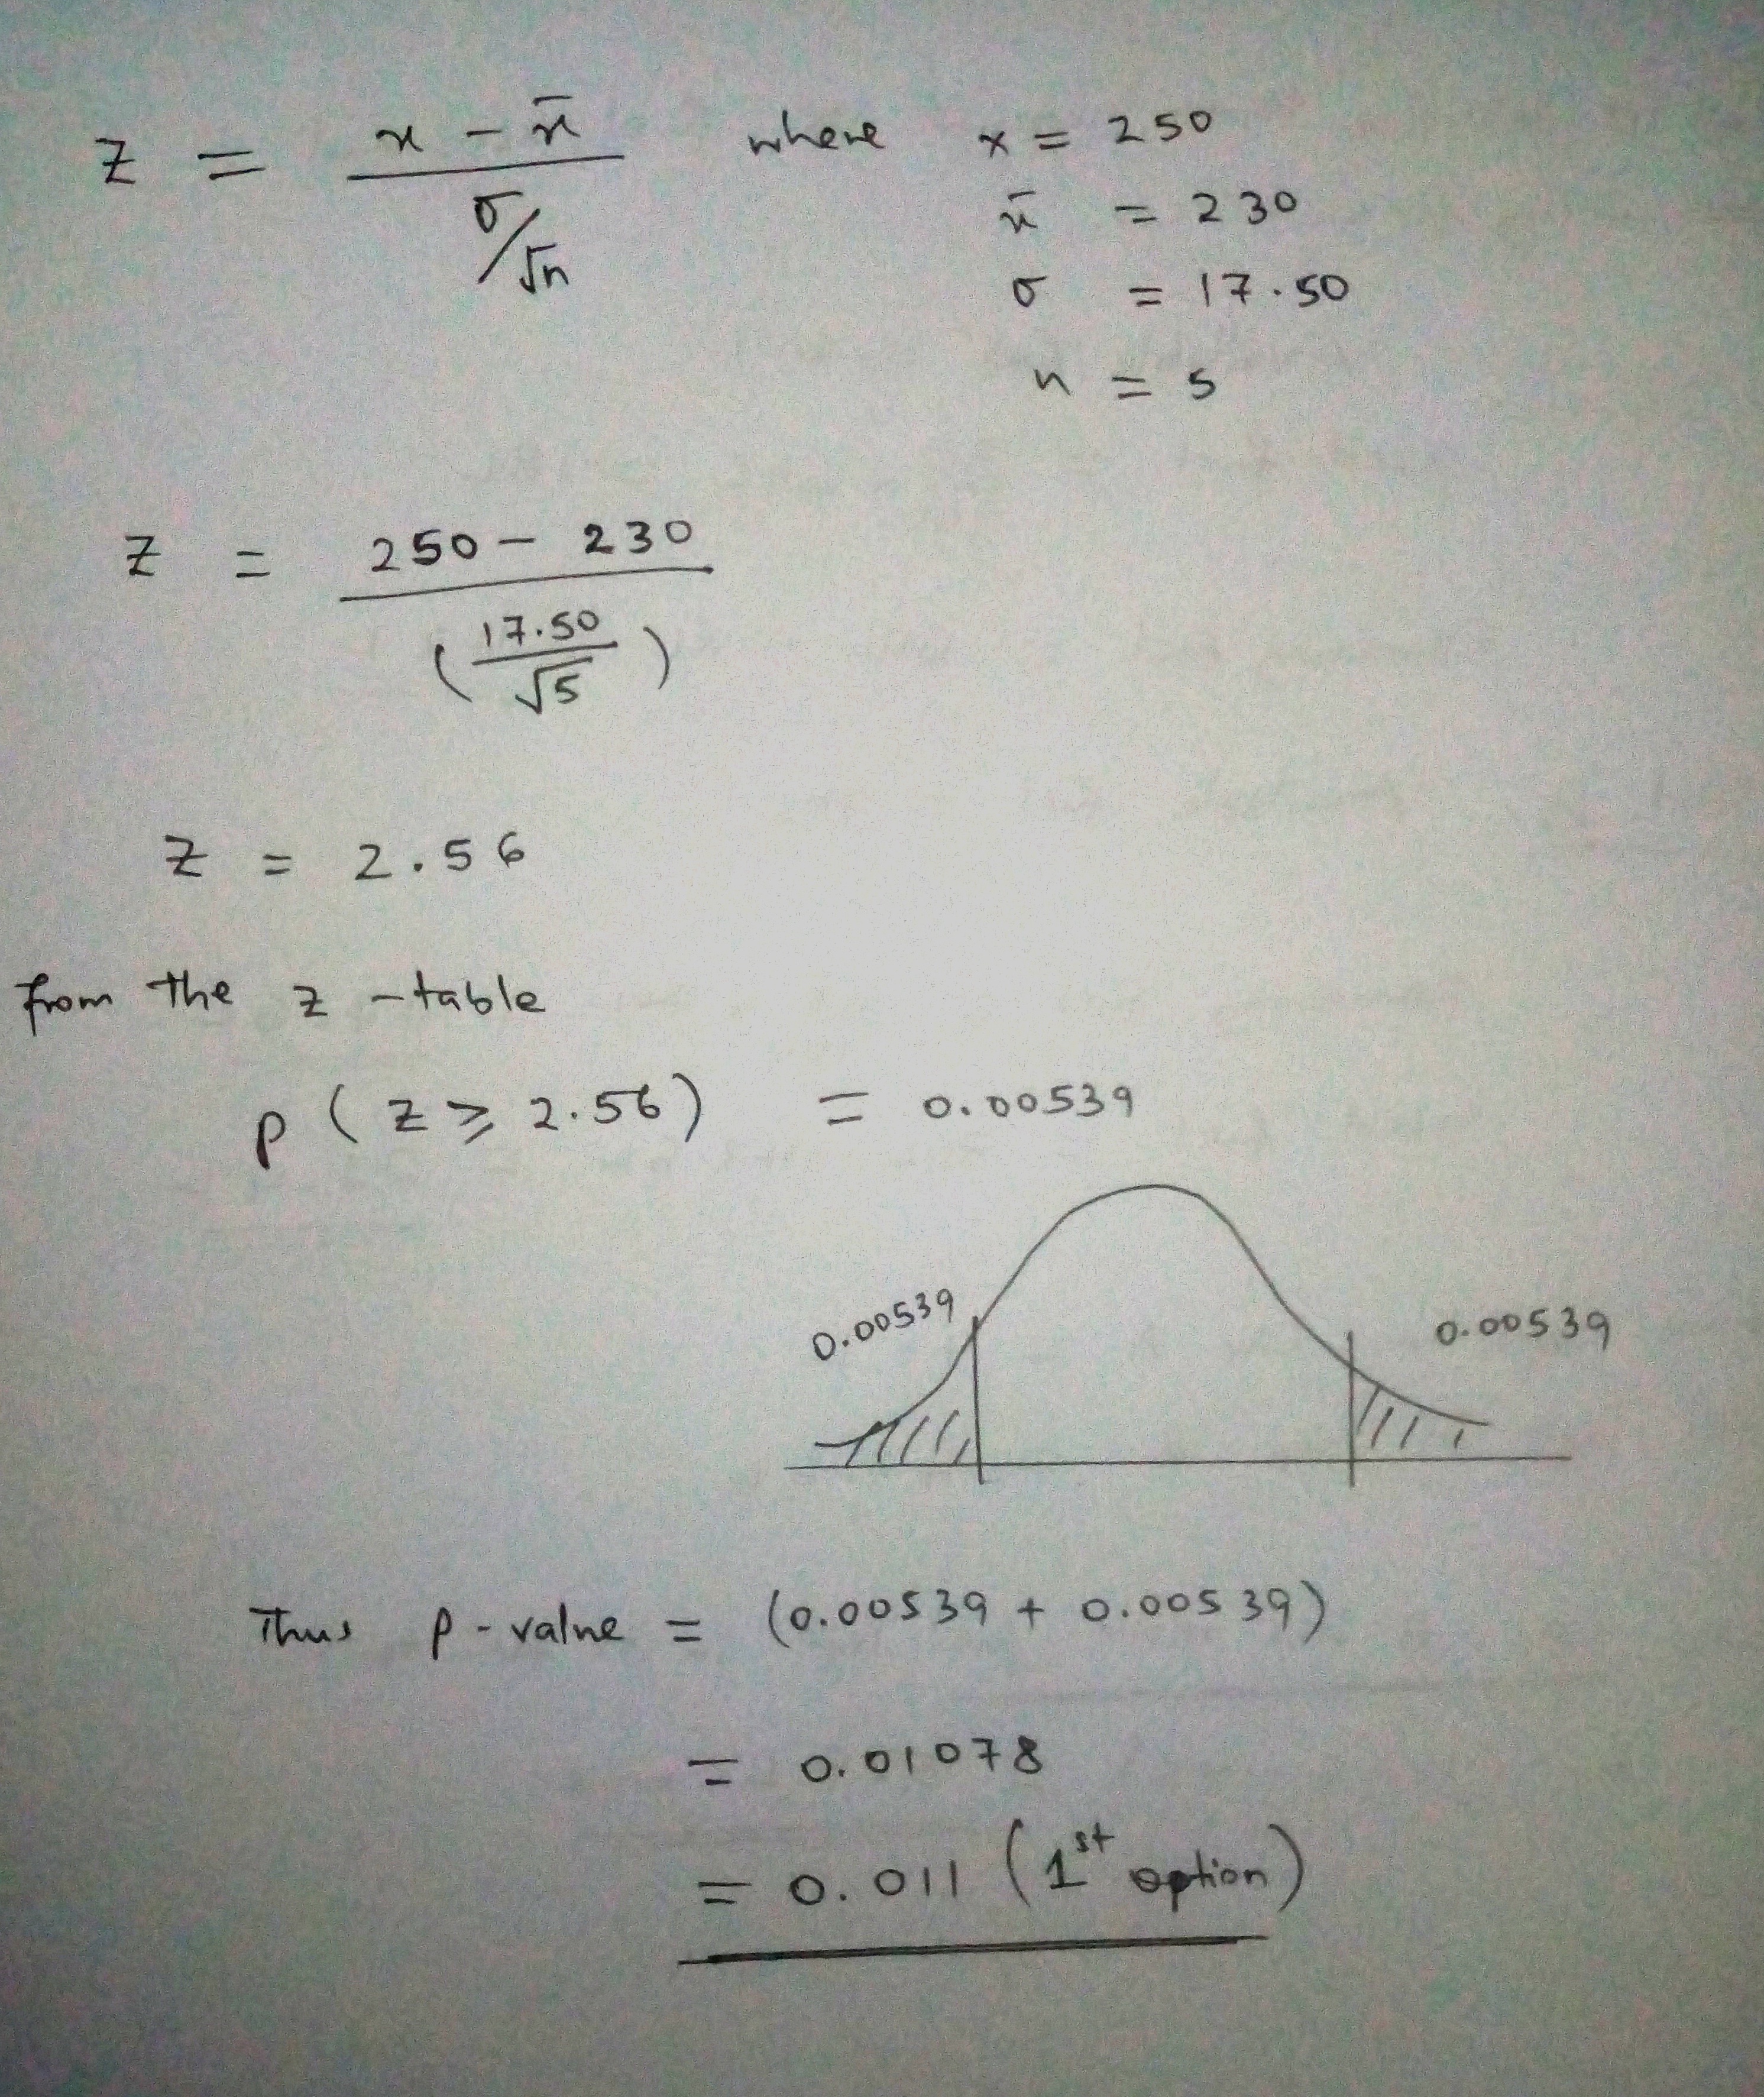 z = x - x̄ / σ/√n where x = 250
x̄ = 230
σ = 17.50
n = 5
z = 250 - 230 / (17.50/√5)
z = 2.56
from the z - table
p (z ≥ 2.56) = 0.00539
0.00539 0.00539
Thus p - value = (0.00539 + 0.00539)
= 0.01078
= 0.011 (1st option)